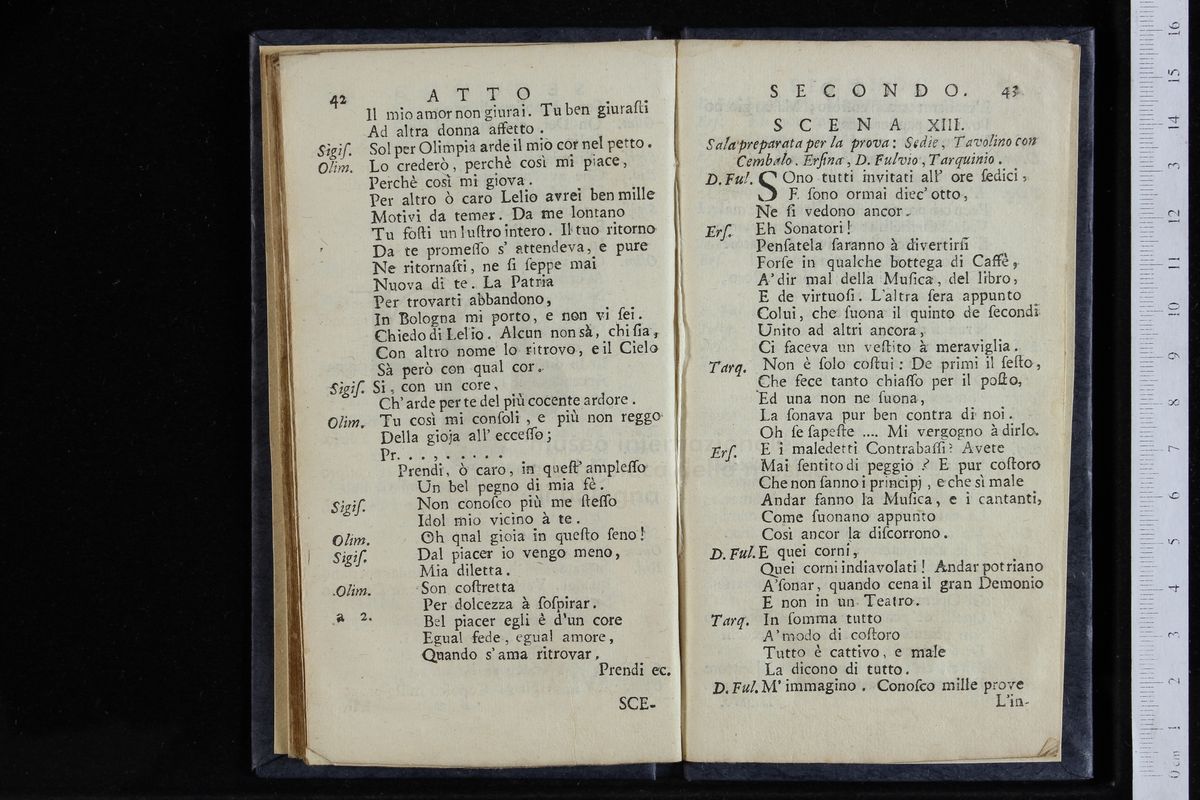 42 ATTO
Il mio amor non giurai. Tu ben giuraſti
Ad altra donna affetto .
Sigiſ. Sol per Olimpia arde il mio cor nel petto .
Olim. Lo crederò , perchè così mi piace ,
Perchè così mi giova .
Per altro ò caro Lelio avrei ben mille
Motivi da temer . Da me lontano
Tu foſti un luſtro intero . Il tuo ritorno
Da te promeſſo s' attendeva , e pure
Ne ritornaſti , ne ſi ſeppe mai
Nuova di te . La Patria
Per trovarti abbandono ,
In Bologna mi porto , e non vi ſei .
Chiedo di Lelio . Alcun non sà , chi ſia ,
Con altro nome lo ritrovo , e il Cielo
Sà però con qual cor .
Sigiſ. Si , con un core ,
Ch' arde per te del più cocente ardore .
Olim. Tu così mi conſoli , e più non reggo
Della gioja all' ecceſſo ;
Pr. . . , . . . . .
Prendi , ò caro , in queſt' ampleſſo
Un bel pegno di mia fè .
Sigiſ. Non conoſco più me ſteſſo
Idol mio vicino à te .
Olim. Oh qnal gioia in queſto ſeno !
Sigiſ. Dal piacer io vengo meno ,
Mia diletta .
Olim. Son coſtretta
Per dolcezza à ſoſpirar .
a 2. Bel piacer egli è d'un core
Egual fede , egual amore ,
Quando s' ama ritrovar .
Prendi ec.
SCE-
SECONDO. 43
SCENA XIII.
Sala preparata per la prova : Sedie , Tavolino con
Cembalo . Erſina , D. Fulvio , Tarquinio .
D. Ful. SOno tutti invitati all' ore ſedici ,
E ſono ormai diec' otto ,
Ne ſi vedono ancor .
Erſ. Eh Sonatori !
Penſatela ſaranno à divertirſi
Forſe in qualche bottega di Caffè ,
A' dir mal della Muſica , del libro ,
E de virtuoſi . L'altra ſera appunto
Colui , che ſuona il quinto de ſecondi
Unito ad altri ancora ,
Ci faceva un veſtito à meraviglia .
Tarq. Non è ſolo coſtui : De primi il ſeſto ,
Che fece tanto chiaſſo per il poſto ,
Ed una non ne ſuona ,
La ſonava pur ben contra di noi .
Oh ſe ſapeſte .... Mi vergogno à dirlo.
Erſ. E i maledetti Contrabaſſi ? Avete
Mai ſentito di peggio ? E pur coſtoro
Che non ſanno i principj , e che sì male
Andar fanno la Muſica , e i cantanti,
Come ſuonano appunto
Così ancor la diſcorrono .
D. Ful. E quei corni ,
Quei corni indiavolati ! Andar potriano
A'ſonar , quando cena il gran Demonio
E non in un Teatro .
Tarq. In ſomma tutto
A'modo di coſtoro
Tutto è cattivo , e male
La dicono di tutto .
D. Ful. M' immagino . Conoſco mille prove
L'in-